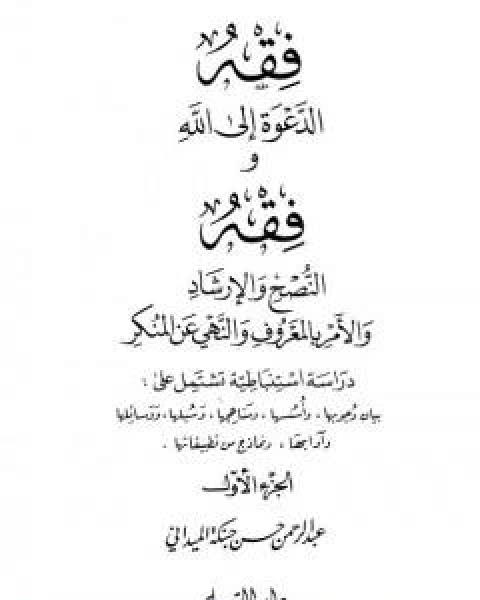 فِقْهُ
الدَّعْوَةِ إِلَى اللَّهِ
وَ
فِقْهُ
النُّصْحِ وَالإِرْشَادِ
وَالأَمْرِ بِالمَعْرُوفِ وَالنَّهْيِ عَنِ المُنْكَرِ
دراسة استنباطية تشتمل على :
بيان وجوبها، وأسسها، ومناهجها، وسبلها، ووسائلها
وآدابها، ونماذج من تطبيقاتها .
الجزء الأول
عبد الرحمن حسن حبنكة الميداني